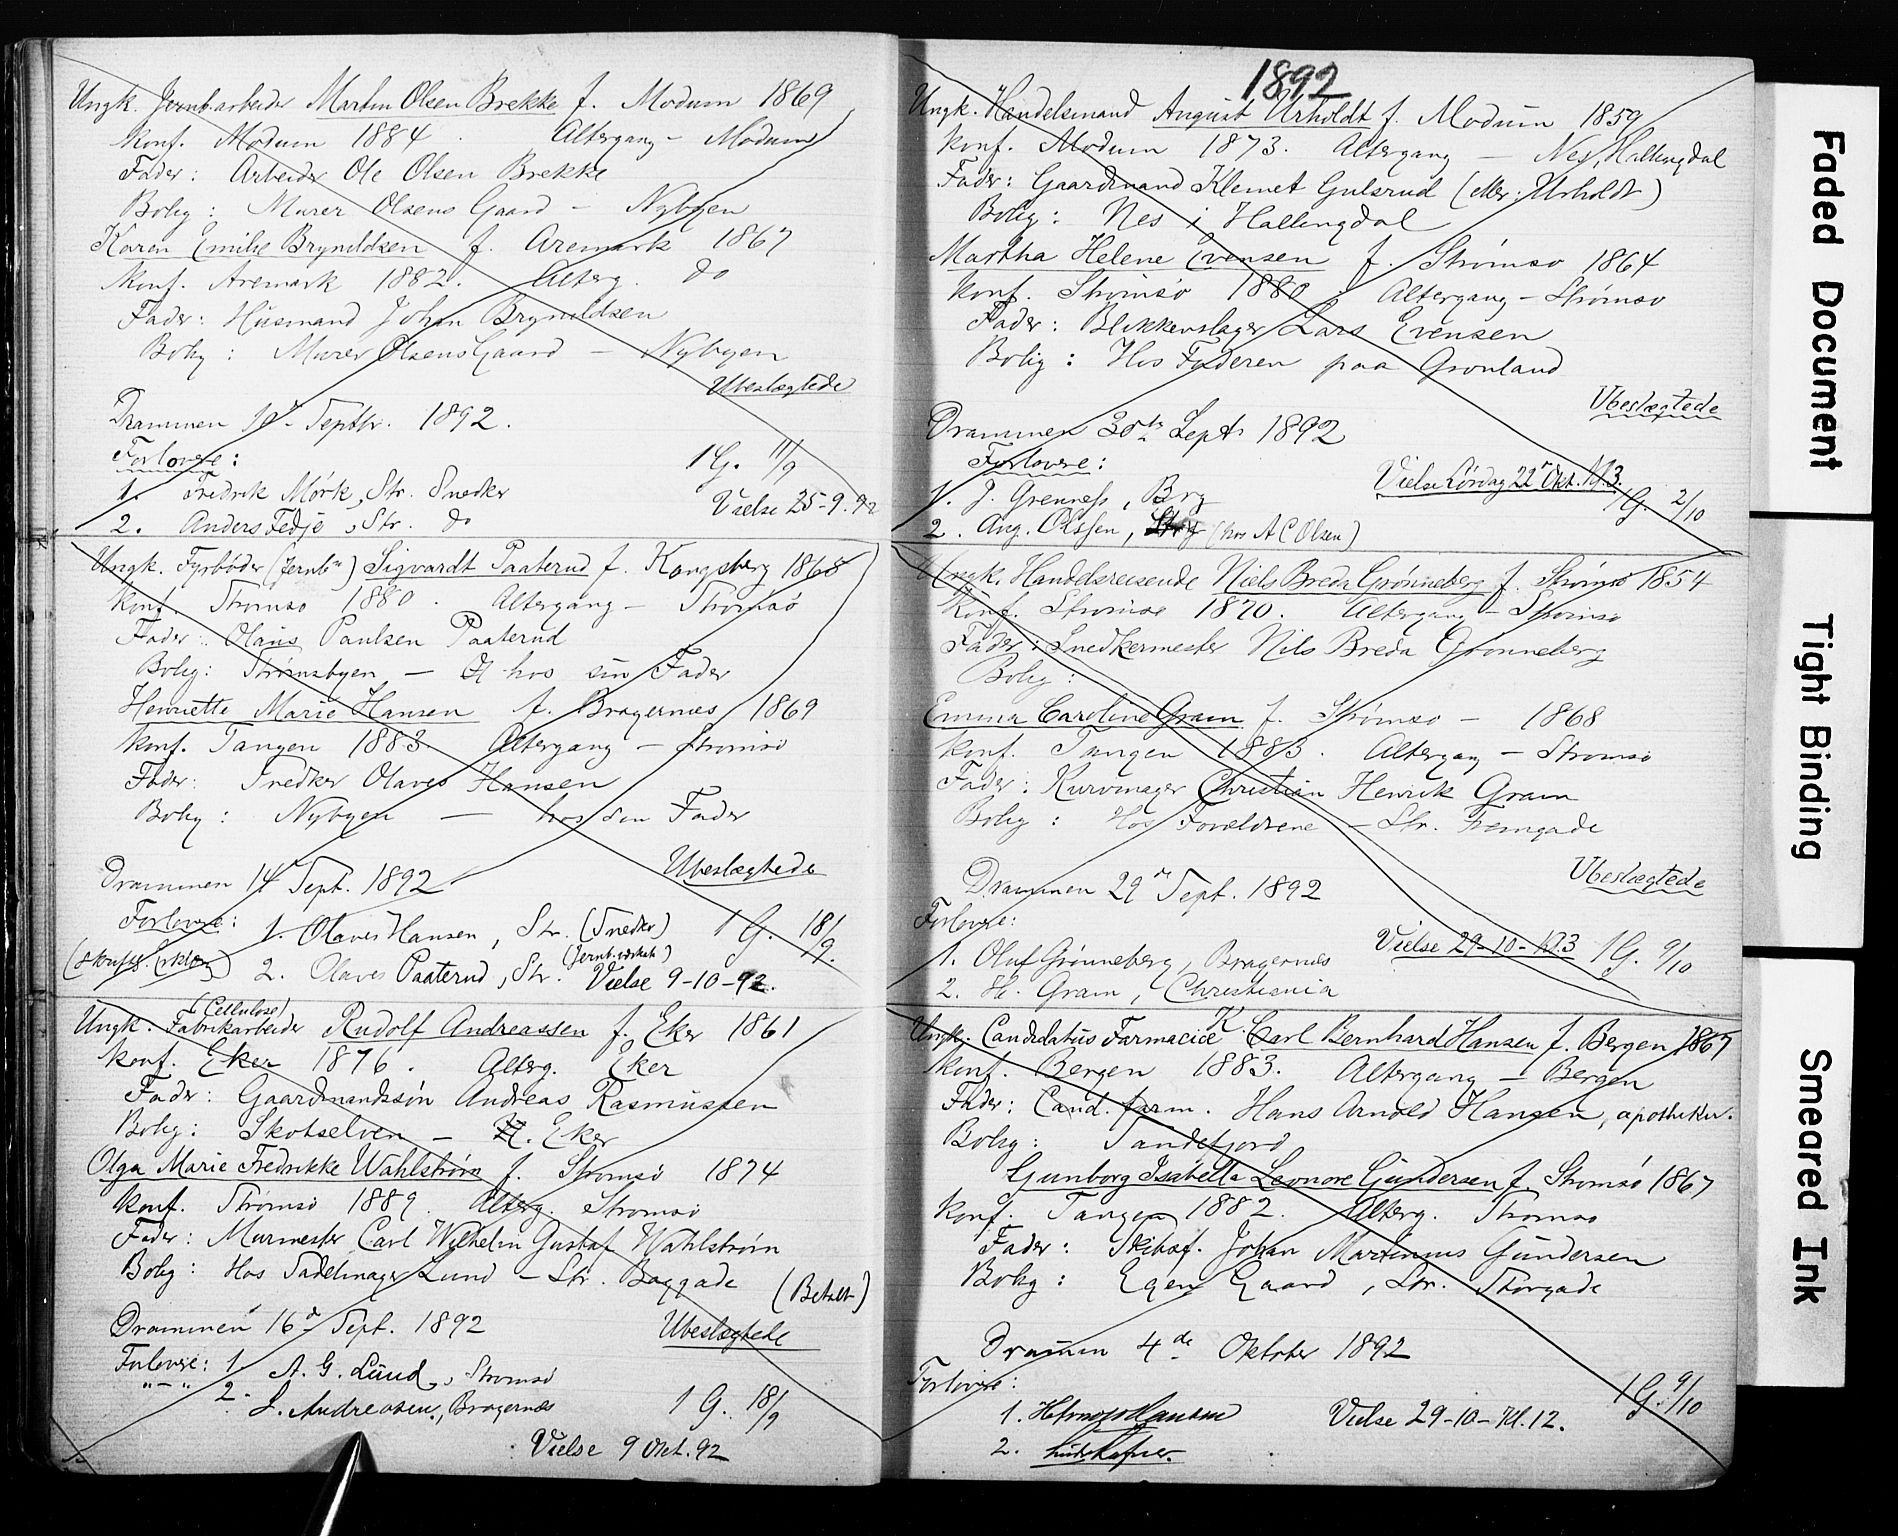 Ungk. Jernb.arbeider Martin Olsen Brekke f. Modum 1869
konf. Modum 1884. Altergang - Modum
Fader: Arbeider Ole Olsen Brekke
Bolig: Murer Olsens Gaard - Nybyen
Karen Emilie Brynildsen f. Aremark 1867
konf. Aremark 1882. Alterg. do
Fader: Husmand Johan Brynildsen
Bolig: Murer Olsens Gaard - Nybyen
Ubeslægtede
Drammen Septbr. 1892.
Forlovere: 1 G. 11/9
1. Fredrik Mørk, Str. Snedker
Vielse 25-9-92
2. Anders Fedje, Str. do
Ungk. Fyrbøder (Jernb) Sigvardt Paaterud f. Kongsberg 1868
konf. Strømsø 1880. Altergang - Strømsø
Fader: Olaus Paulsen Paaterud
Bolig: Tørnsbyen - hos sin Fader
Henriette Marie Hansen f. Bragernæs 1869
konf. Tangen 1883. Altergang - Strømsø
Fader: Snedker Olaves Hansen
Bolig: Nybyen - hos sin Fader
Ubeslægtede
Drammen 14 Sept. 1892
Forlovere: 1. Olaves Hansen, Str. (Snedker) 1 G. 18/9.
2. Olaves Paaterud, Str. (Jernb.værkst.) Vielse 9-10-92.
(Cellulose)
Ungk. Fabrikarbeider Rudolf Andreassen f. Eker 1861
konf. Eker 1876. Alterg. Eker
Fader: Gaardmandssøn Andreas Rasmussen
Bolig: Skotselven - Eker
Olga Marie Fredrikke Wahlstrøm f. Strømsø 1874
konf. Strømsø 1889. Alterg. Strømsø
Fader: Murmester Carl Wilhelm Gustaf Wahlstrøm
Bolig: Hos Sadelmager Lund - Str. Baggade (Betalt)
Drammen 16d Sept. 1892 Ubeslægtede
Forlovere: 1. A. G. Lund, Strømsø
"-" 2. Andreasen, Bragernæs 1 G. 18/9
Vielse 9 Okt. 92
1892
Ungk. Handelsmand August Urholdt f. Modum 1859
konf. Modum 1873. Altergang - Nes, Hallingdal
Fader: Gaardmand Klemet Gulsrud (eller: Urholdt)
Bolig: Nes i Hallingdal
Martha Helene Evensen f. Strømsø 1864
konf. Strømsø 1880 Altergang - Strømsø
Fader: Blikkenslager Lars Evensen
Bolig: Hos Faderen paa Grønland
Ubeslægtede
Drammen 30te Sept. 1892
Forlovere:
Vielse Lørdag 22 Okt. Kl 3.
1. J. Grenness, Brg 1 G. 2/10
2. Aug. Olssen, (hos A C Olsen)
Ungk. Handelsreisende Niels Breda Grønneberg f. Strømsø 1854
konf. Strømsø 1870. Altergang - Strømsø
Fader: Snedkermester Nils Breda Grønneberg
Bolig:
Emma Caroline Gram f. Strømsø - 1868
konf. Tangen 1883. Altergang - Strømsø
Fader: Kurvmager Christian Henrik Gram
Bolig: Hos Forældrene - Str. Fremgade
Ubeslægtede
Drammen 29 Sept. 1892
Forlovere:
Vielse 29-10-Kl. 3 1 G. 9/10
1. Oluf Grønneberg, Bragernæs
2. H. Gram, Christiania
Ungk. Candidatus Farmacice K. Carl Bernhard Hansen f. Bergen 1867
konf. Bergen 1883. Altergang - Bergen
Fader: Cand. farm. Hans Arnold Hansen, apotheker.
Bolig: Sandefjord
Gunborg Isabella Leonore Gundersen f. Strømsø 1867
konf. Tangen 1882. Alterg. Strømsø
Fader: Skibsf. Johan Martinius Gundersen
Bolig: Egen Gaard, Str. Storgade
Drammen 4de Oktober 1892
Forlovere: 1 G. 9/10
1. Hansen Vielse 29-10-Kl. 12.
2.
Faded Document
Tight Binding
Smeared Ink